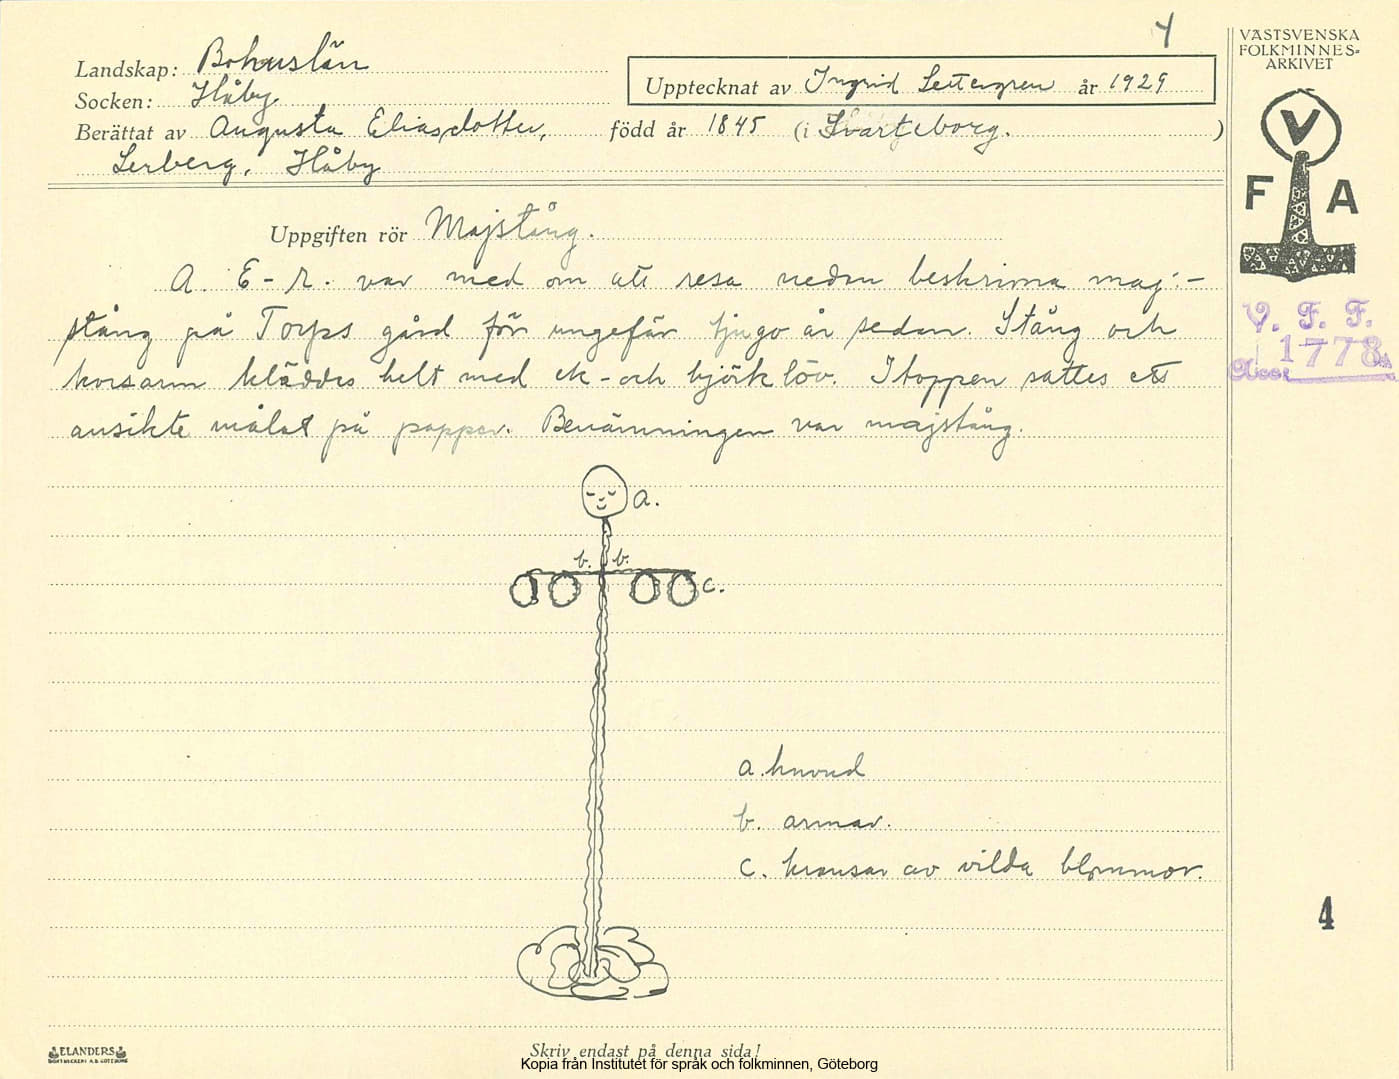 4
VÄSTSVENSKA
FOLKMINNES-
ARKIVET
Landskap: Bohuslän
Socken: Håby
Upptecknat av Ingrid Settergren år 1929
Berättat av Augusta Eliasdotter, född år 1845 (i Svarteborg. )
Lerberg, Håby
V
F A
V. F. F.
Acc: 1778
Uppgiften rör Majstång.
A. E-r. var med om att resa nedan beskrivna maj-
stång på Torps gård för ungefär tjugo år sedan. Stång och
korsarm kläddes helt med ek- och björklöv. I toppen sattes ett
ansikte målat på papper. Benämningen var majstång.
a.
b. b.
c.
a. huvud
b. armar.
c. kransar av vilda blommor.
4
ELANDERS
BOKTRYCKERI A.B. GÖTEBORG
Skriv endast på denna sida!
Kopia från Institutet för språk och folkminnen, Göteborg